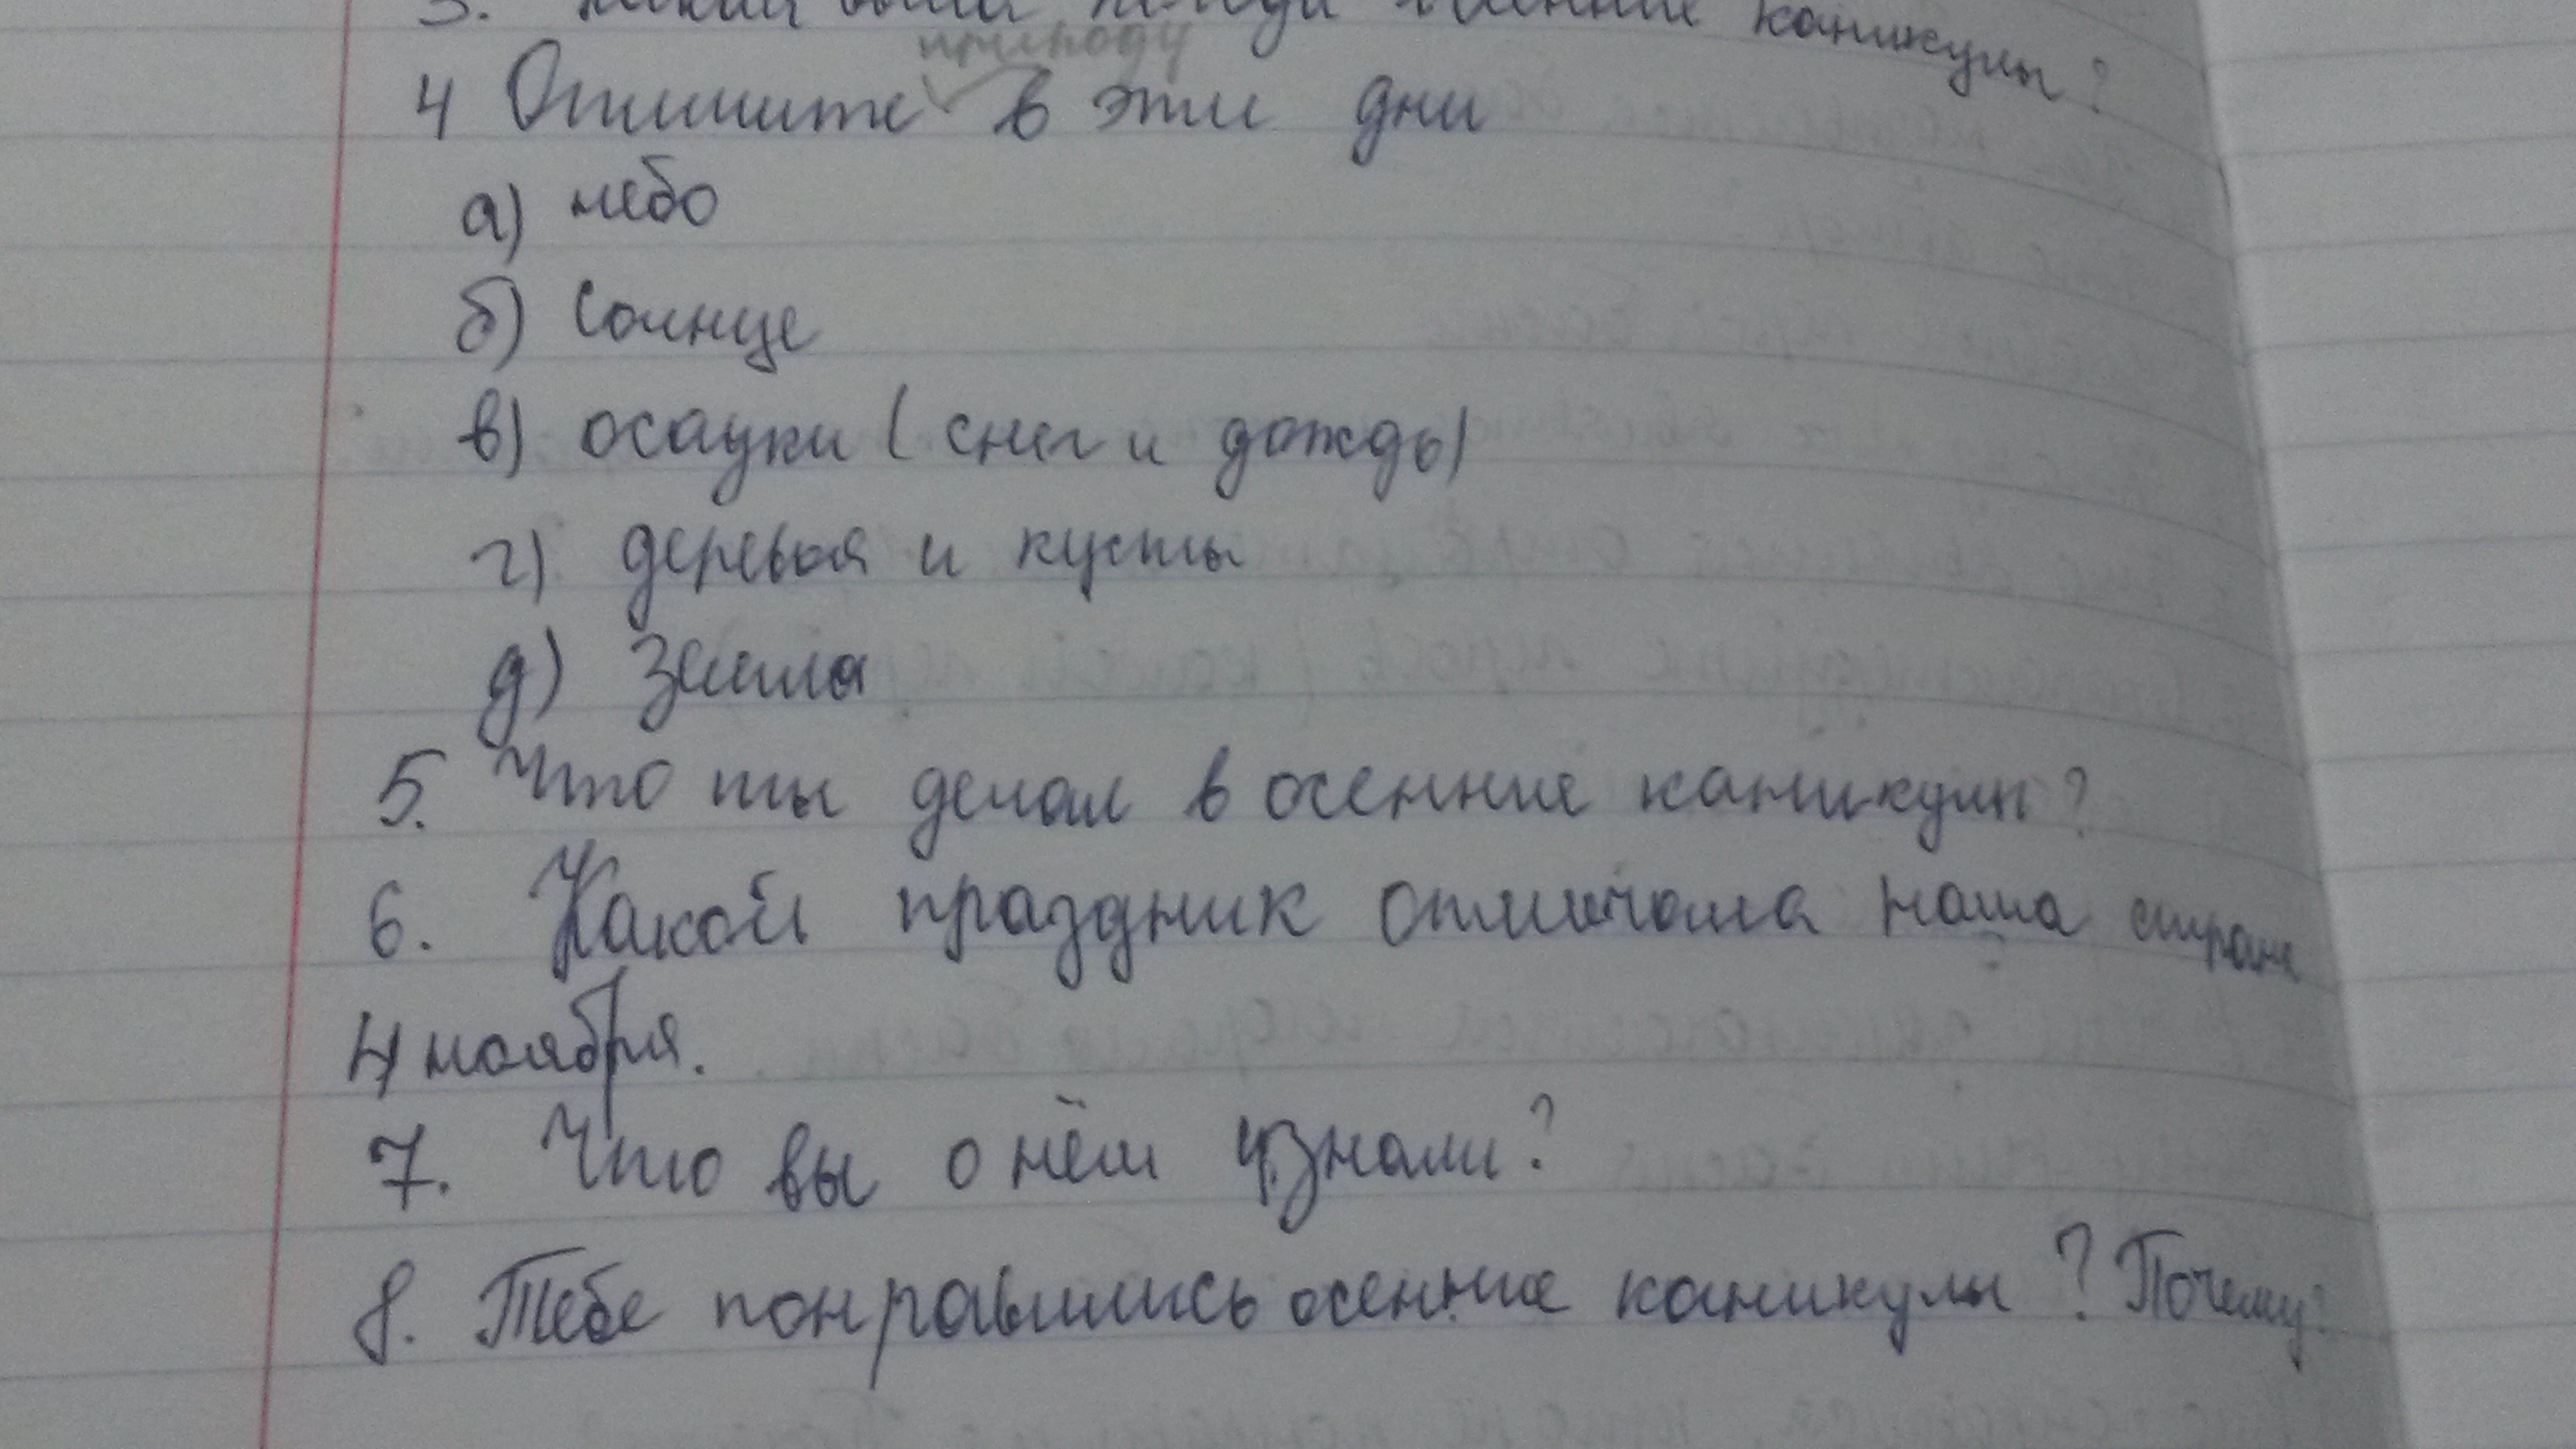 3. Какая была погода в осенние каникулы?
природу
4 Опишите в эти дни
а) небо
б) Солнце
в) осадки (снег и дождь)
г) деревья и кусты
д) Земла
5. Что ты делал в осенние каникулы?
6. Какой праздник отмичала наша страна
4 ноября.
7. Что вы о нём узнали?
8. Тебе понравились осенние каникулы? Почему?